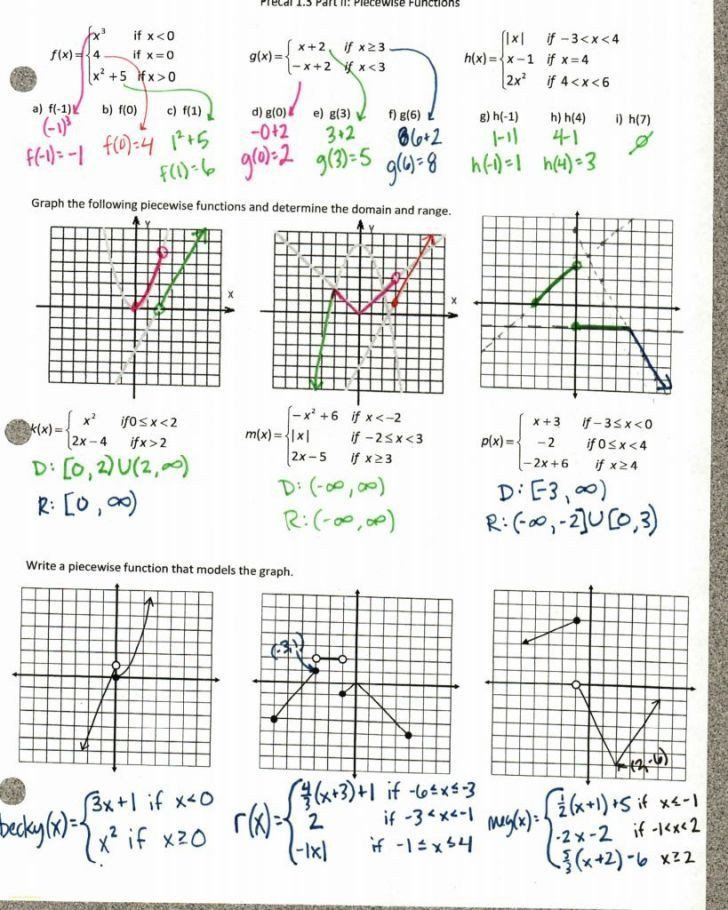 Precal 1.3 Part II: Piecewise Functions
f(x) = { x³ if x < 0
4 if x = 0
x² + 5 if x > 0
g(x) = { x + 2, if x ≥ 3
-x + 2 if x < 3
h(x) = { |x| if -3 < x < 4
x - 1 if x = 4
2x² if 4 < x < 6
a) f(-1) b) f(0) c) f(1) d) g(0) e) g(3) f) g(6) g) h(-1) h) h(4) i) h(7)
(-1)³
f(-1) = -1
f(0) = 4
1² + 5
f(1) = 6
-0+2
g(0) = 2
3+2
g(3) = 5
6+2
g(6) = 8
|-1|
h(-1) = 1
4-1
h(4) = 3
∅
Graph the following piecewise functions and determine the domain and range.
Y
X
Y
X
k(x) = { x² if 0 ≤ x < 2
2x - 4 if x > 2
D: [0, 2) U (2, ∞)
R: [0, ∞)
m(x) = { -x² + 6 if x < -2
|x| if -2 ≤ x < 3
2x - 5 if x ≥ 3
D: (-∞, ∞)
R: (-∞, ∞)
p(x) = { x + 3 if -3 ≤ x < 0
-2 if 0 ≤ x < 4
-2x + 6 if x ≥ 4
D: [-3, ∞)
R: (-∞, -2] U [0, 3)
Write a piecewise function that models the graph.
(-3,1)
(2,-6)
becky(x) = { 3x+1 if x<0
x² if x≥0
r(x) = { 4/3(x+3)+1 if -6≤x≤-3
2 if -3<x<-1
-|x| if -1≤x≤4
meg(x) = { 1/2(x+1)+5 if x≤-1
-2x-2 if -1<x<2
5/3(x+2)-6 x≥2